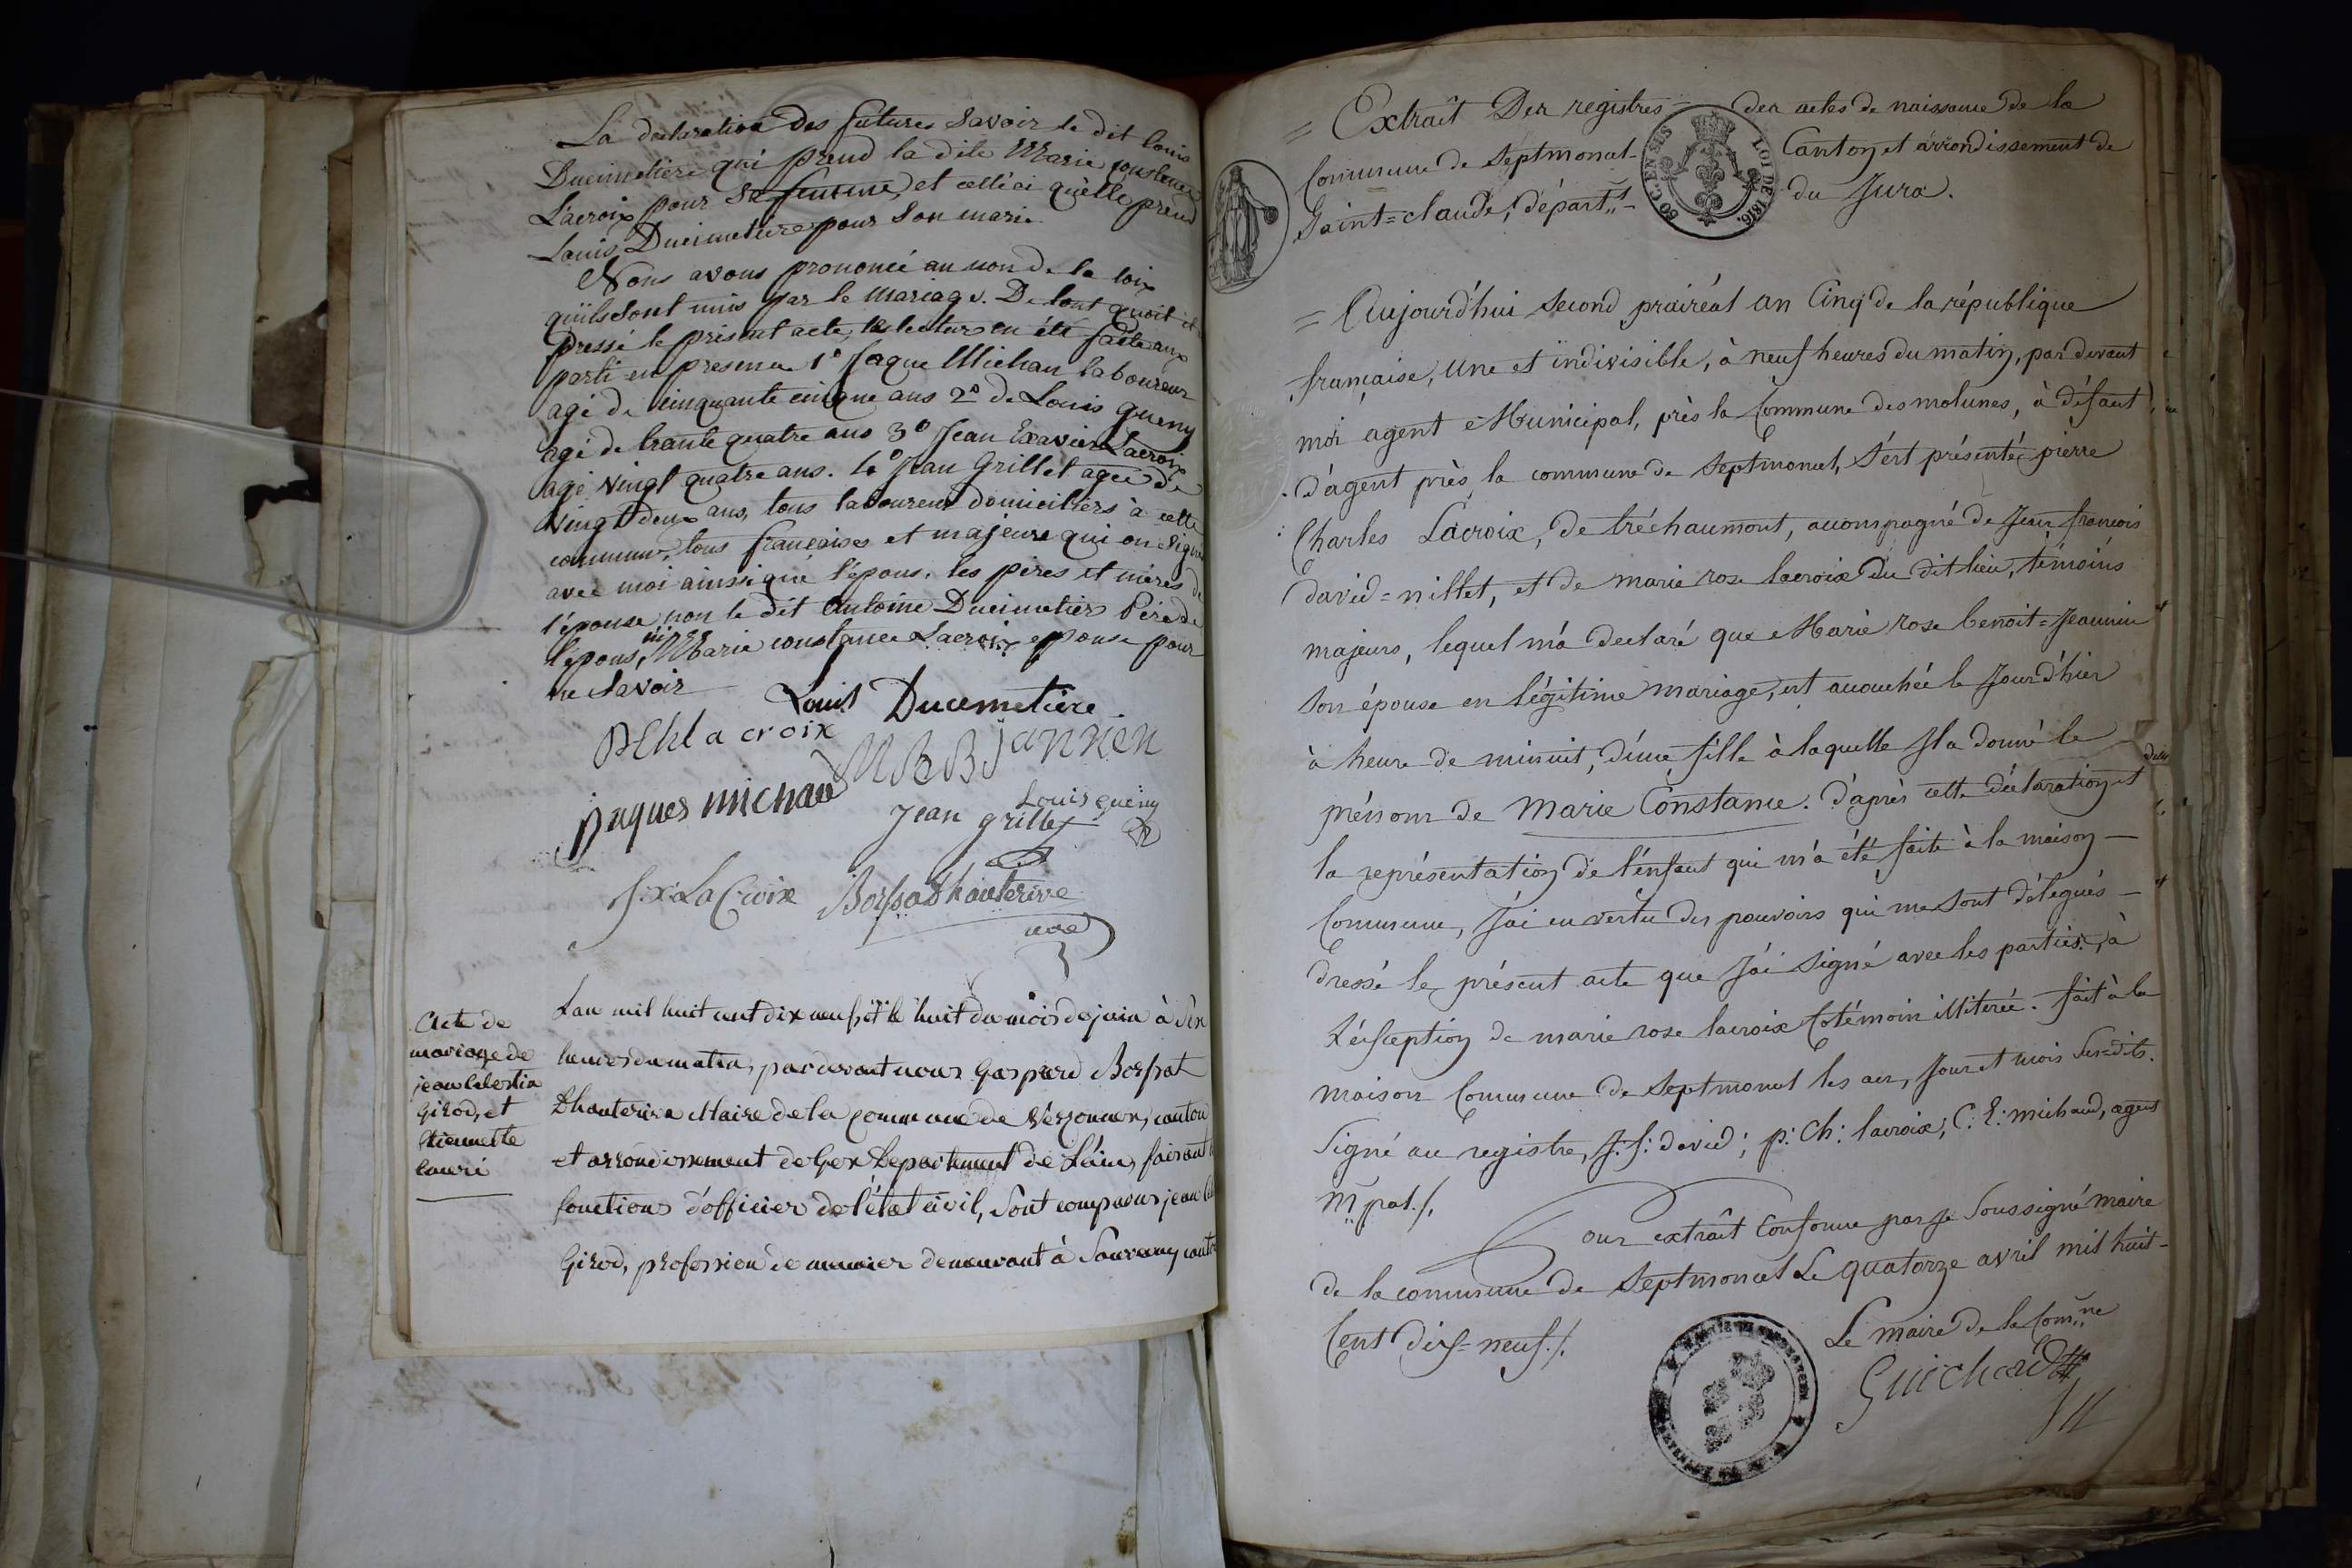 La declaration des futures Savoir le dit louis
Ducimetiere qui prend la dite Marie constance
Lacroix pour Sa femme, et celle ci qu'elle prend
Louis Ducimetiere pour Son mari
Nous avons prononcé au nom de la loix
qu'ils sont unis par le Mariage. De tout quoit
dressé le présent acte, lecture en été faite aux
parti en presence 1° Jaque Michau laboureur
agé de cinquante cinque ans 2° de Louis queny
agé de trante quatre ans 3° Jean Exavier Lacroix
agé vingt quatre ans. 4° Jean Grillet agée de
vingt deux ans, tous laboureur domiciliers à cette
commune, tous françaises et majeure qui on signé
avec moi ainsi que l'épous, les pères et mères de
l'épouse, non le dit Antoine Ducimetier Père de
l'épous, ni Marie constance Lacroix epouse pour
ne Savoir
Louis Ducimetiere
P Ch la croix
M R B jannien
jaques michaud
Louis queiny
Jean grillet
J. X. La Croix
Borssat d'hauterive
maire
Acte de
mariage de
jean Celestin
Girod, et
Etiennette
Lauri
L'an mil huit cent dix neuf, et le huit du mois de juin à Six
heures du matin, pardevant nous Gaspard Borssat
d'hauterive Maire de la commune de Versonnex, canton
et arrondissement de Gex Departement de l'ain, faisant
fonctions d'officier de l'état civil, Sont comparus jean
Girod, profession de munier demeurant à Sauverny
= Extrait Des registres des actes de naissance de la
Commune de Septmoncel Canton et arrondissement de
Saint=claude, départ.t du Jura.
60 C. EN SUS LOI DE 1816.
= Aujourd'hui second prairéal an Cinq de la république
française, Une et indivisible, à neuf heures du matin, par devant
moi agent Municipal, près la Commune des molunes, à défaut
d'agent près la commune de Septmoncel, s'est présenté pierre
Charles Lacroix, de tréchaumont, accompagné de Jean françois
david=nillet, et de marie rose lacroix Du dit lieu, témoins
majeurs, lequel m'a declaré que Marie rose benoit=Jeannin
son épouse en légitime mariage, est accouchée le Jour d'hier
à heure de minuit, d'une fille à laquelle Il a donné le
prénom de Marie Constance. d'après cette déclaration et
la représentation de l'enfant qui m'a été faite à la maison
Commune, J'ai en vertu des pouvoirs qui me sont délégués
dressé le présent acte que J'ai signé avec les parties, à
L'exception de marie rose lacroix Cotémoin illiterée. fait à la
maison Commune de Septmoncel les an, Jour et mois Sus=dits.
Signé au registre, J: f: david; p: Ch: lacroix; C. E: michaud, agent
m pal ./.
Pour extrait Conforme par Je Soussigné maire
de la commune de Septmoncel Le quatorze avril mil huit
Cent dix=neuf ./.
Le maire de la Com.ne
Guichard